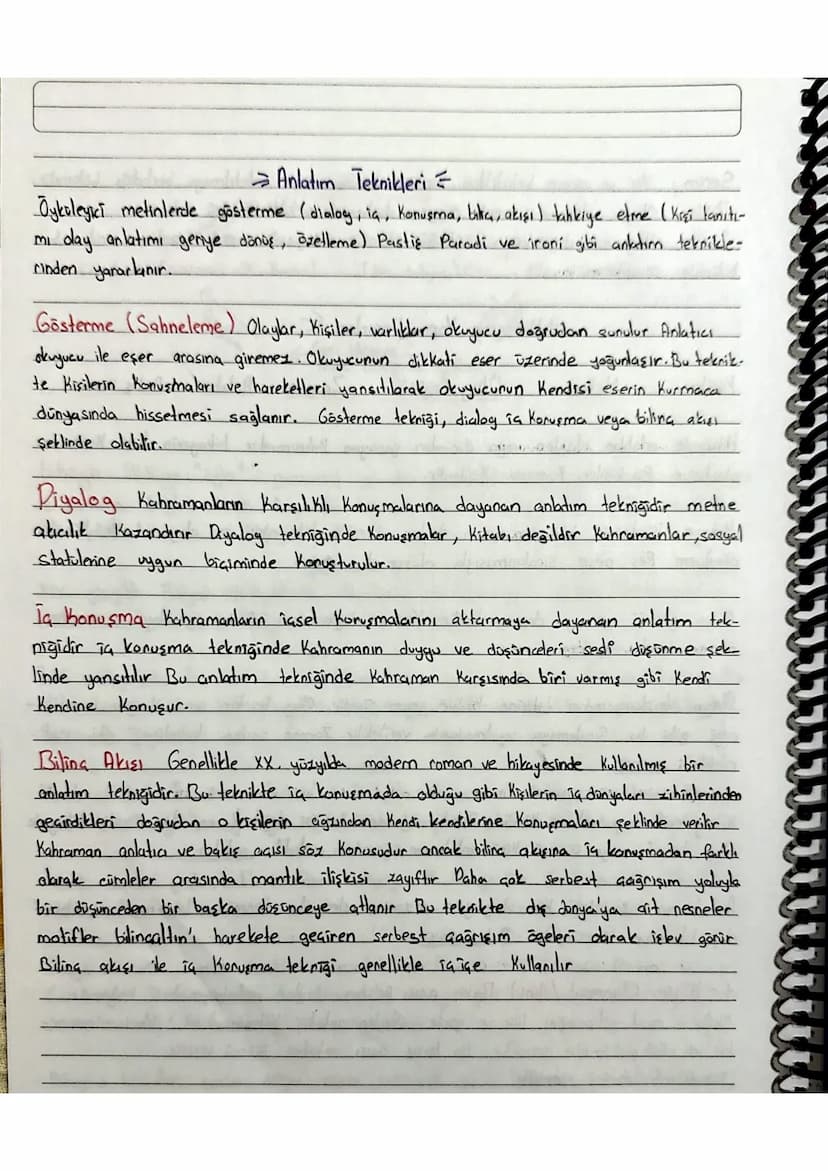 => Anlatım Teknikleri <=
Öyküleyici metinlerde gösterme (dialog, iç, konuşma, bilinç, akışı) tahkiye etme (Kişi tanıtı-
mı olay anlatımı geriye dönüş, özelleme) Pastiş Parodi ve ironi gibi anlatım teknikle-
rinden yararlanır.
Gösterme (Sahneleme) Olaylar, kişiler, varlıklar, okuyucu doğrudan sunulur Anlatıcı
okuyucu ile eser arasına giremez. Okuyucunun dikkati eser üzerinde yoğunlaşır. Bu teknik-
te kişilerin konuşmaları ve hareketleri yansıtılarak okuyucunun kendisi eserin kurmaca
dünyasında hissetmesi sağlanır. Gösterme tekniği, dialog iç konuşma veya bilinç akışı
şeklinde olabilir.
Diyalog Kahramanların karşılıklı konuşmalarına dayanan anlatım tekniğidir metne
akıcılık kazandırır Diyalog tekniğinde konuşmalar, kitabı değildir kahramanlar, sosyal
statülerine uygun biçiminde konuşturulur.
İç konuşma Kahramanların içsel konuşmalarını aktarmaya dayanan anlatım tek-
niğidir iç konuşma tekniğinde kahramanın duygu ve düşünceleri sesli düşünme şek-
linde yansıtılır Bu anlatım tekniğinde kahraman karşısında biri varmış gibi kendi
kendine konuşur.
Bilinç Akışı Genellikle XX. yüzyılda modern roman ve hikayesinde kullanılmış bir
anlatım tekniğidir. Bu teknikte iç konuşmada olduğu gibi kişilerin iç dünyaları zihinlerinden
geçirdikleri doğrudan o kişilerin ağzından kendi kendilerine konuşmaları şeklinde verilir
kahraman anlatıcı ve bakış açısı söz konusudur ancak bilinç akışına iç konuşmadan farklı
olarak cümleler arasında mantık ilişkisi zayıftır Daha çok serbest çağrışım yoluyla
bir düşünceden bir başka düşünceye atlanır Bu teknikte dış dünya'ya ait nesneler
motifler bilinçaltın'ı harekete geçiren serbest çağrışım ögeleri olarak işlev görür
Bilinç akışı ile iç konuşma tekniği genellikle iç içe kullanılır